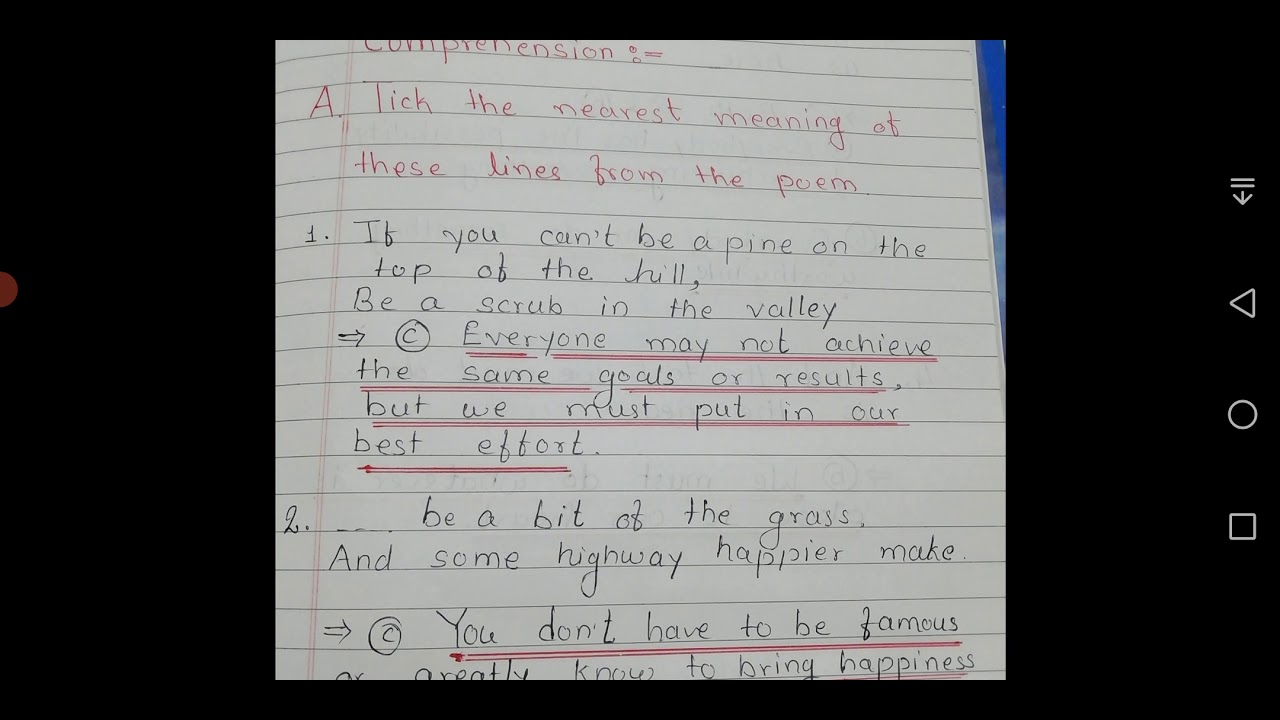 Comprehension :=
A. Tick the nearest meaning of
these lines from the poem.
1. If you can't be a pine on the
top of the hill,
Be a scrub in the valley
⇒ (C) Everyone may not achieve
the same goals or results,
but we must put in our
best effort.
2. ___ be a bit of the grass,
And some highway happier make.
⇒ (C) You don't have to be famous
or greatly know to bring happiness